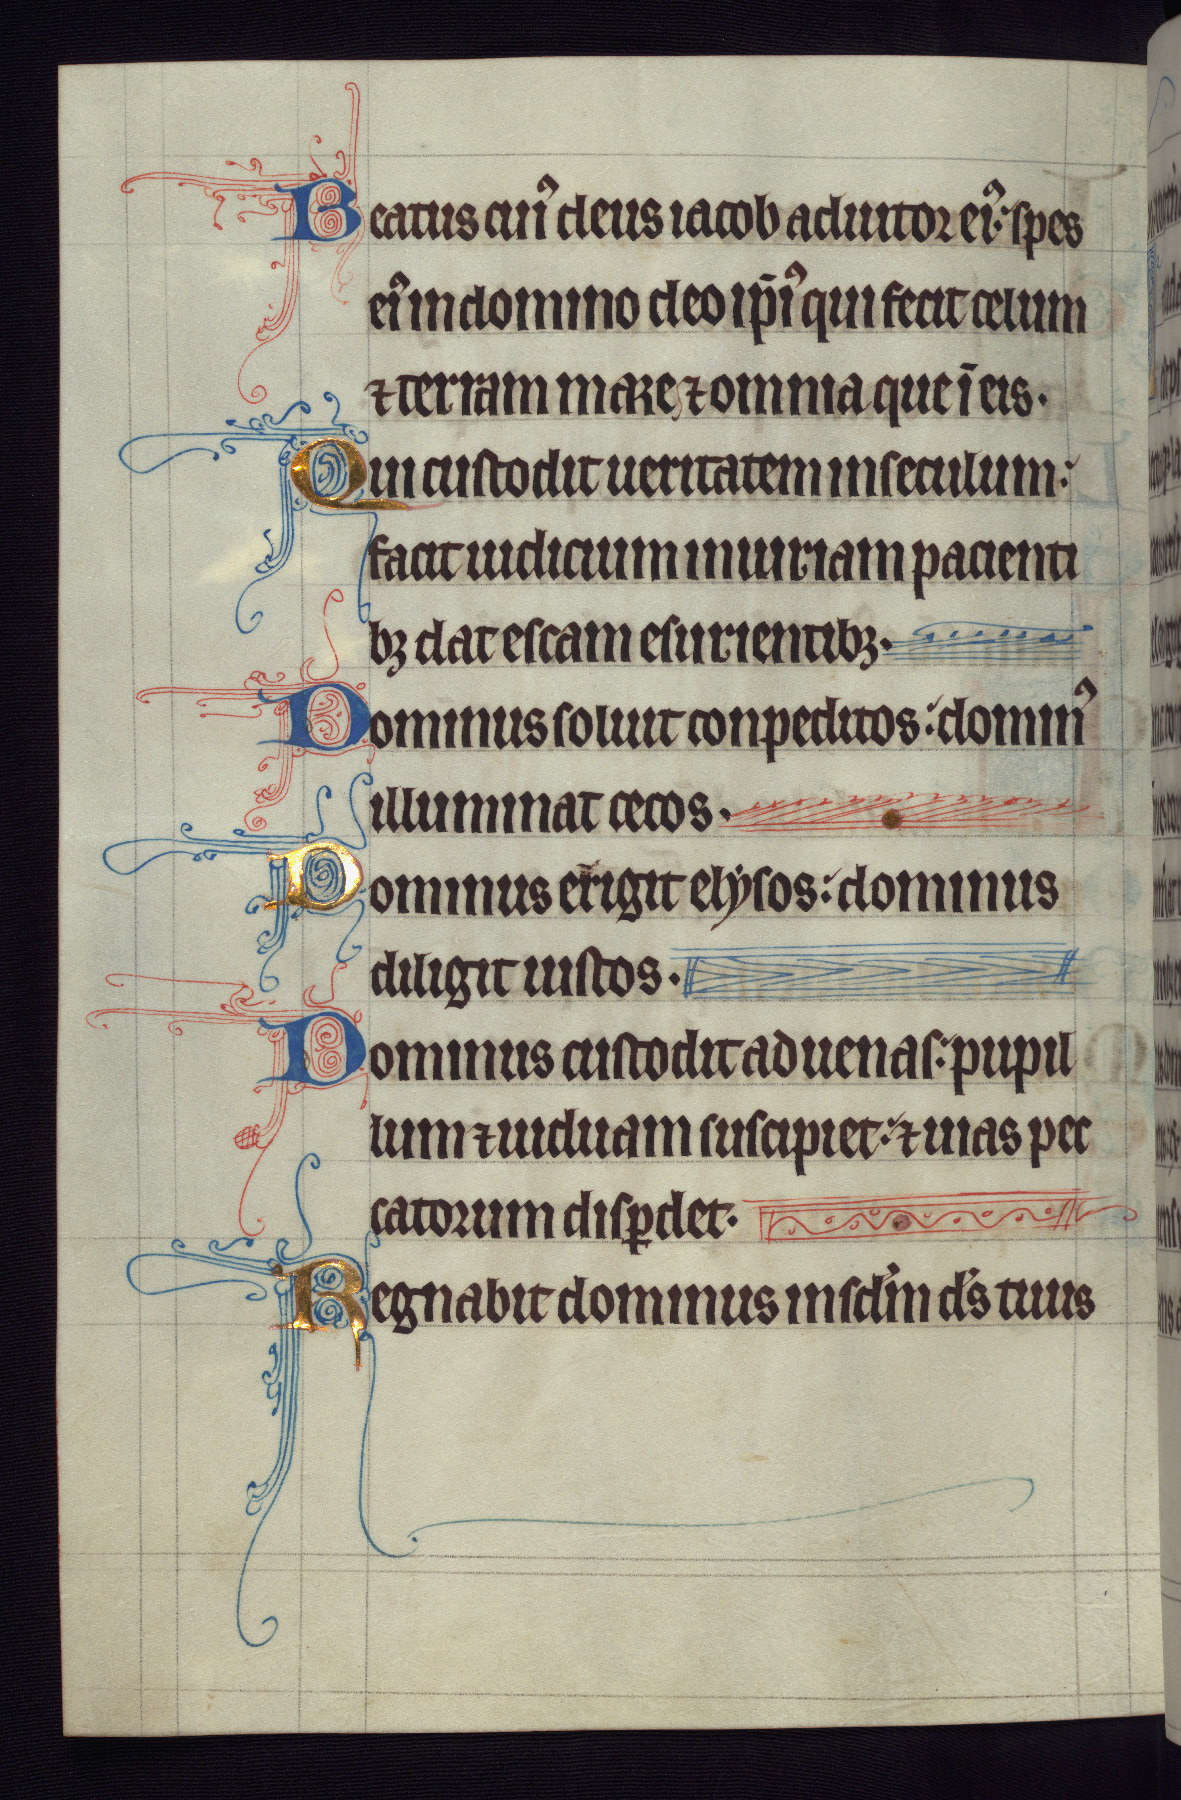 Beatus cuiꝰ deus iacob adiutor eiꝰ: spes
eiꝰ in domino deo ip̄iꝰ qui fecit celum
⁊ terram mare ⁊ omnia que ī eis.
Qui custodit ueritatem in seculum:
facit iudicium iniuriam pacienti
bꝫ dat escam esurientibꝫ.
Dominus soluit conpeditos: dominꝰ
illuminat cecos.
Dominus erigit elysos: dominus
diligit iustos.
Dominus custodit aduenas: pupil
lum ⁊ uiduam suscipiet: ⁊ uias pec
catorum disꝑdet.
Regnabit dominus in sclm ds tuus